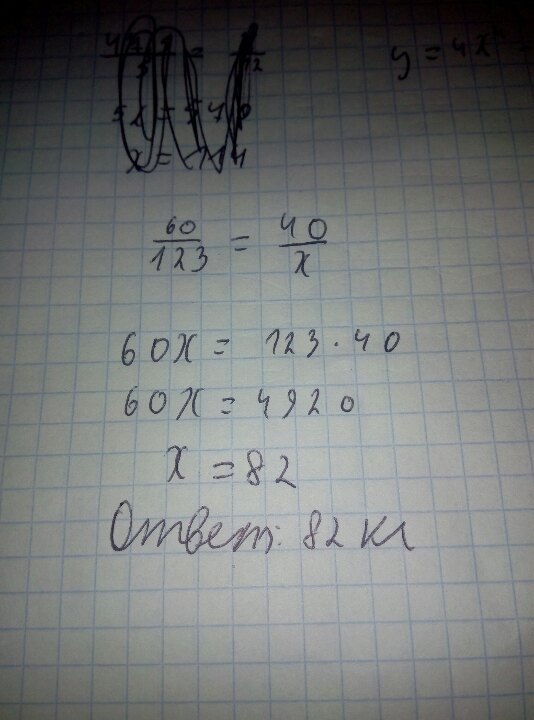 y = 4x
60/123 = 40/x
60x = 123 · 40
60x = 4920
x = 82
Ответ: 82 кг